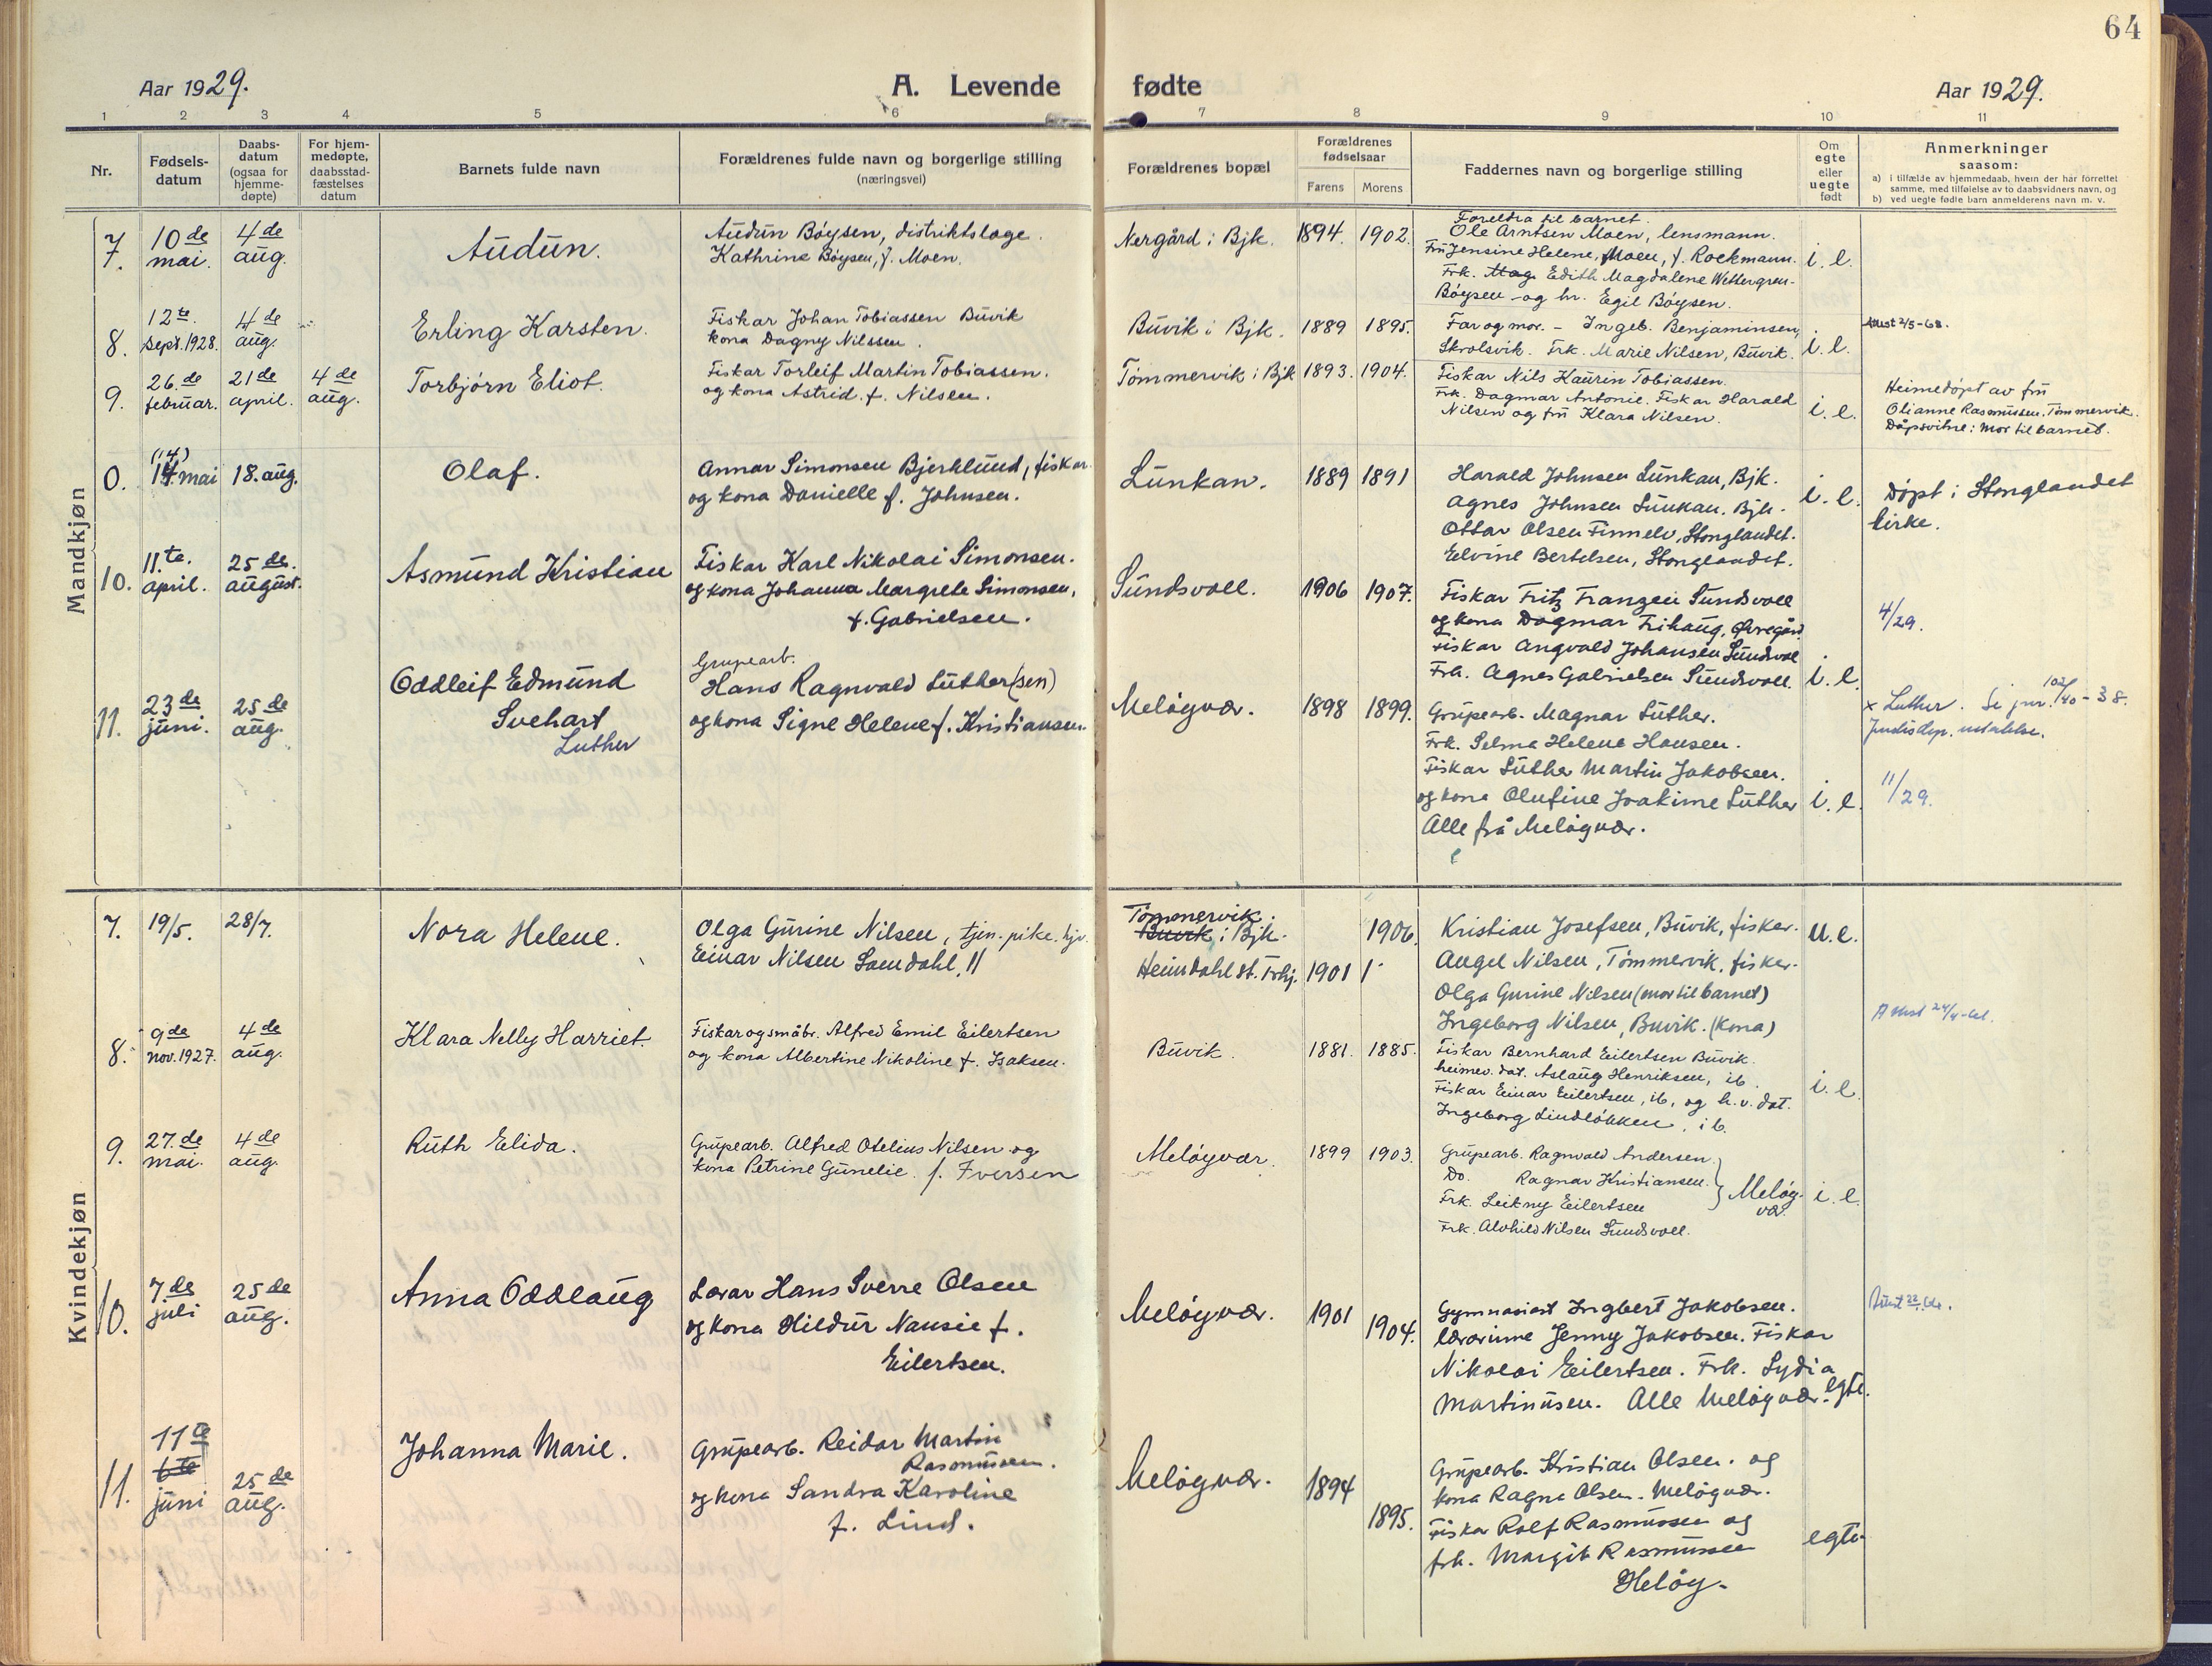 64
Aar 1929.
A. Levende fødte
Aar 1929.
1 2 3 4 5 6 7 8 9 10 11
Nr.
Fødsels-
datum
Daabs-
datum
(ogsaa for
hjemme-
døpte)
For hjem-
medøpte,
daabsstad-
fæstelses
datum
Barnets fulde navn
Forældrenes fulde navn og borgerlige stilling
(næringsvei)
Forældrenes bopæl
Forældrenes
fødselsaar
Farens
Morens
Faddernes navn og borgerlige stilling
Om
egte
eller
uegte
født
Anmerkninger
saasom:
a) i tilfælde av hjemmedaab, hvem der har forrettet
samme, med tilføielse av to daabsvidners navn, og
b) ved uegte fødte barn anmelderens navn m. v.
Mandkjøn
7.
10de
mai.
4de
aug.
Audun.
Audun Bøysen, distriktslæge.
Kathrine Bøysen, f. Moen.
Nergård i Bjk.
1894. 1902.
Foreldra til barnet.
Ole Arntsen Moen, lensmann.
Fru Jensine Helene Moen, f. Rockmann.
Frk. Mag Edith Magdalene Wettergren-
Bøysen og hr. Egil Bøysen.
i. e.
8.
12te.
sept. 1928.
4de
aug.
Erling Karsten.
Fiskar Johan Tobiassen Buvik
kona Dagny Nilssen.
Buvik i Bjk.
1889 1895.
Far og mor. - Ingeb. Benjaminsen,
Skrolsvik. Frk. Marie Nilsen, Buvik.
i. e.
Attest 2/5-68.
9.
26.de
februar.
21de
april.
4de
aug.
Torbjørn Eliot.
Fiskar Torleif Martin Tobiassen.
og kona Astrid f. Nilsen.
Tømmervik i Bjk
1893. 1904.
Fiskar Nils Kaurin Tobiassen.
Frk. Dagmar Antonie. Fiskar Harald
Nilsen og fru Klara Nilsen.
i. e.
Heimedøpt av fru
Olianne Rasmussen, Tømmervik.
Dåpsvitne: Mor til barnet.
0.
(14)
14. mai
18. aug.
Olaf.
Annar Simonsen Bjerklund, fiskar
og kona Danielle f. Johnsen.
Lunkan.
1889 1891
Harald Johnsen Lunkan, Bjk.
Agnes Johnsen Lunkan. Bjk.
Ottar Olsen Finnelv, Stonglandet.
Eelvine Bertelsen, Stonglandet.
i. e.
Døpt i Stonglandet
kirke.
10.
11.te.
april.
25de.
august.
Asmund Kristian
Fiskar Karl Nikolai Simonsen.
og kona Johanna Margrete Simonsen,
f. Gabrielsen.
Sundsvoll.
1906 1907.
Fiskar Fritz Franzen Sundsvoll
og kona Dagmar Frihaug, Øvregård
Fiskar Angvald Johansen Sundsvoll
Frk. Agnes Gabrielsen Sundsvoll.
i. e.
4/29.
11.
23de
juni.
25de
aug.
Oddleif Edmund
Svehart
Luther
Grupearb.
Hans Ragnvald Luther(sen)
og kona Signe Helene f. Kristiansen.
Meløyvær.
1898 1899.
Grupearb. Magnar Luther.
Frk. Selma Helene Hansen.
Fiskar Luther Martin Jakobsen.
og kona Olufine Joakime Luther
Alle frå Meløyvær.
i. e.
x Luther. Se jnr. 102/40-38.
11/29.
Kvindekjøn
7.
19/5.
28/7.
Nora Helene.
Olga Gurine Nilsen, tjen.pike. hjv.
Einar Nilsen Samdahl, 11
Tømmervik.
Buvik i Bjk.
Heimdahl st. Trhj.
1906.
1901 1
Kristian Josefsen, Buvik, fisker.
Angel Nilsen, Tømmervik, fisker.
Olga Gurine Nilsen (mor til barnet)
Ingeborg Nilsen, Buvik. (kona)
u. e.
8.
9de
nov. 1927.
4de
aug.
Klara Nelly Harriet.
Fiskar og småbr. Alfred Emil Eilertsen
og kona Albertine Nikoline f. Isaksen.
Buvik.
1881. 1885.
Fiskar Bernhard Eilertsen Buvik.
heimev. dot. Aslaug Henriksen, ib.
Fiskar Einar Eilertsen, ib, og h.v. dot.
Ingeborg Lindløkken, ib.
i. e.
9.
27.de
mai.
4de
aug.
Ruth Elida.
Grupearb. Alfred Otelius Nilsen og
kona Petrine Gunelie. f. Iversen
Meløyvær.
1899 1903.
Grupearb. Ragnvald Andersen
Do. Ragnar Kristiansen.
Frk. Leikny Eilertsen
Meløy-
vær.
Frk. Alvhild Nilsen Sundsvoll.
i. e.
10.
7.de
juli
25de
aug.
Anna Oddlaug
Lærar Hans Sverre Olsen
og kona Hildur Nansie f.
Eilertsen.
Meløyvær.
1901
1904.
Gymnasiast Ingbert Jakobsen.
lærarinne Jenny Jakobsen. Fiskar
Nikolai Eilertsen. Frk. Lydia
Martinusen. Alle Meløyvær.
egte.
11.
11te
6te
juni
25de
aug.
Johanna Marie.
Grupearb. Reidar Martin
Rasmussen.
og kona Sandra Karoline
f. Lind.
Meløyvær.
1894
1895.
Grupearb. Kristian Olsen. og
kona Ragna Olsen. Meløyvær.
Fiskar Rolf Rasmussen og
frk. Margit Rasmussen
Meløy.
egte